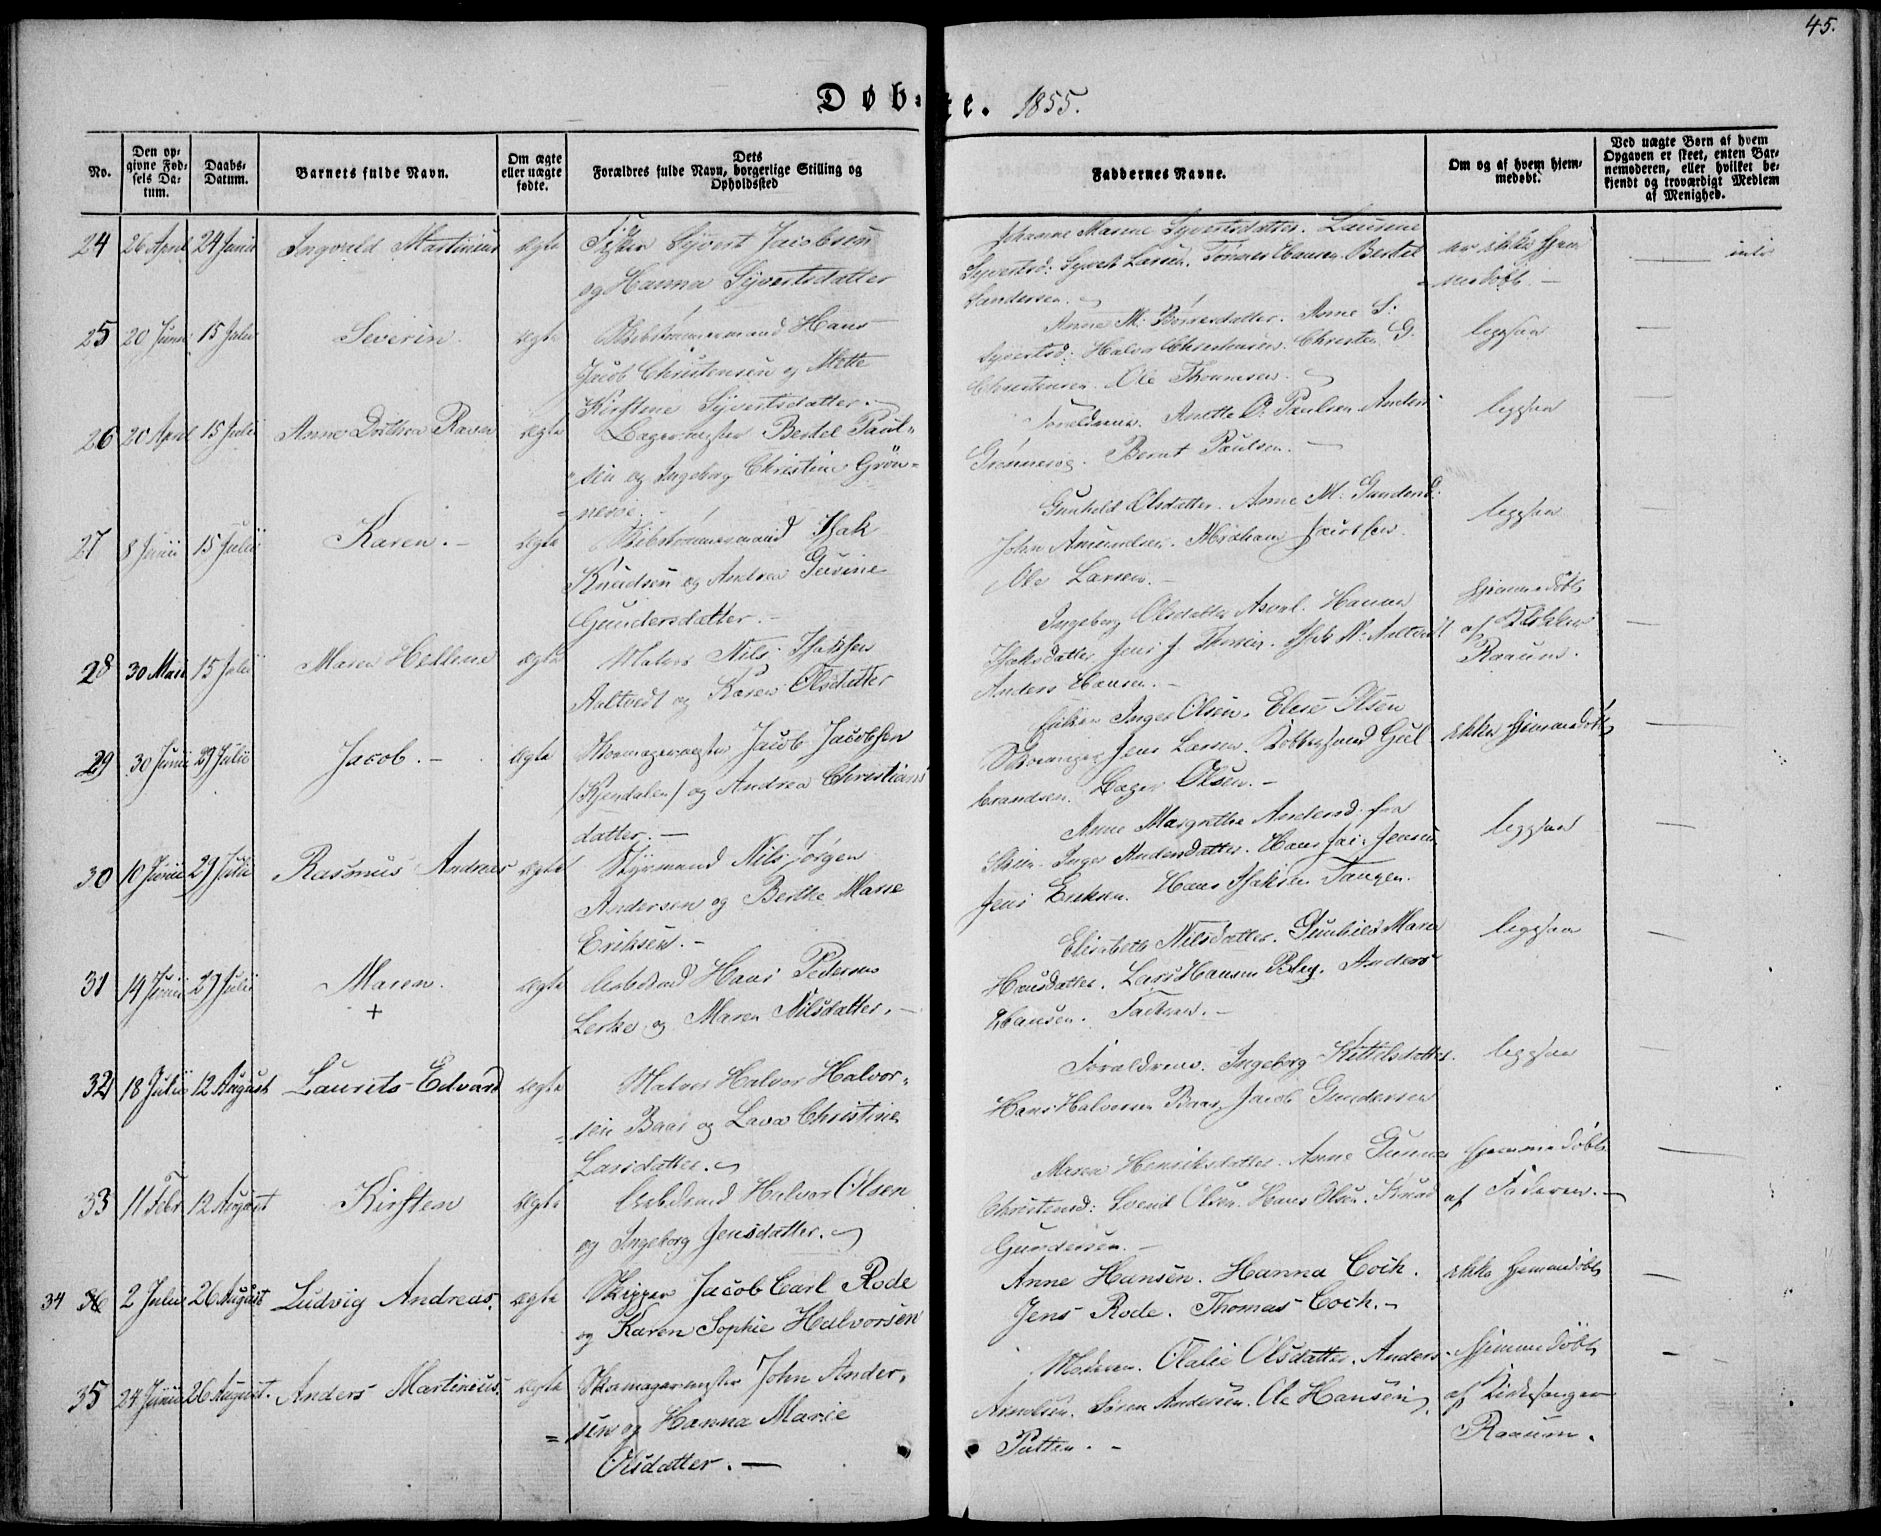 45.
Døbte. 1855.
No.
Den opgivne Fødsels Datum.
Daabs-Datum.
Barnets fulde Navn.
Om ægte eller uægte fødte.
Dets Forældres fulde Navn, borgerlige Stilling og Opholdssted
Faddernes Navne.
Om og af hvem hjemmedøbt.
Ved uægte Børn af hvem Opgaven er skeet, enten Barnemoderen, eller hvilket bekjendt og troværdigt Medlem af Menighed.
24 26 April 24 Junii Ingvald Martinius ægte Fisker Syvert Jacobsen
og Hanna Syvertsdatter
Johanne Marene Syvertsdatter. Laurine
Syvertsd: Syvert Larsen. Tønnes Hansen. Bertel
Sandersen.
er ikke hjem
medøbt. —
25 20 Junii 15 Julii Severin. ægte Skibstømmermand Hans
Jacob Christensen og Mette
Kirstene Syvertsdatter.
Anne M: Børresdatter. Anne S:
Syvertsd: Halvor Christensen. Christen G.
Christensen. Ole Thomsen.
ligesaa
26 20 April 15 Julii Anne Dorthea Raven ægte Bagermester Bertel Paul-
sen og Ingeborg Christine Grøn-
nesse. —
Forældrene. Anette O. Paulsen. Anders
Bernt Paulsen. —
ligesaa
27 8 Junii 15 Julii Karen. — ægte Skibstømmermand Isak
Knudsen og Andrea Gurine
Gundersdatter. —
Gunhild Olsdatter. Anne M: Gundersd:
John Amundsen. Abraham Jacobsen.
Ole Larsen. —
ligesaa
28 30 Maii 15 Julii Maren Hellene ægte Matros Nils Isaksen
Aaltvedt og Karen Olsdatter
Ingeborg Olsdatter Hanna
Isaksdatter Jens J. Isak N: Aaltvedt
Anders Hansen. —
Hjemmedøbt
af Klokker
Raaum.
29 30 Junii 29 Julii Jacob. — ægte Skomagermester Jacob Jacobsen
/Kjendalen/ og Andrea Christians
datter. —
Inger Olsen. Elise Olsen
Jens Larsen. Gul
brandsen. Bager Olsen. —
ikke hjemmedøbt
30 10 Junii 29 Julii Rasmus Andreas ægte Styrmand Nils Jørgen
Andersen og Berthe Marie
Eriksen. —
Anne Margrethe Andersd. fra
Skien. Inger Andersdatter. Hans Jac: Jensen
Jens Eriksen. Hans Isaksen Tangen.
ligesaa
31 14 Junii 29 Julii Maren.
+
ægte Arbdsmd Hans Pedersen
Lerke og Maren Nilsdatter. —
Elisabeth Nilsdatter. Gunhild Marie
Hansdatter. Lars Hansen Bleg. Anders
Hansen. Faderen. —
ligesaa
32 18 Julii 12 August Laurits Edvard ægte Matros Halvor Halvor-
sen Baas og Lava Christine
Larsdatter.
Forældrene. Ingeborg Kittelsdatter.
Hans Halvorsen Baas. Jacob Gundersen
ligesaa
33 11 Febr 12 August Kirsten ægte Arbdsmd Halvor Olsen
og Ingeborg Jensdatter.
Maren Henriksdatter. Anne Gurine
Christensd: Svend Olsen. Hans Olsen. Knud
Gundersen. —
Hjemmedøbt
af Faderen. —
34 2 Julii 26 August Ludvig Andreas. ægte Skipper Jacob Carl Rode
og Karen Sophie Halvorsen
Anne Hansen. Hanna Coch.
Jens Rode. Thomas Coch. —
ikke hjemmedøbt
35 24 Junii 26 August. Anders Martinius. ægte Skomagermester John Ander-
sen og Hanna Marie
Olsdatter. —
Moderen. Olalie Olsdatter. Anders
Søren Andersen. Ole Hansen
Putten. —
Hjemmedøbt
af Kirkesanger
Raaum.